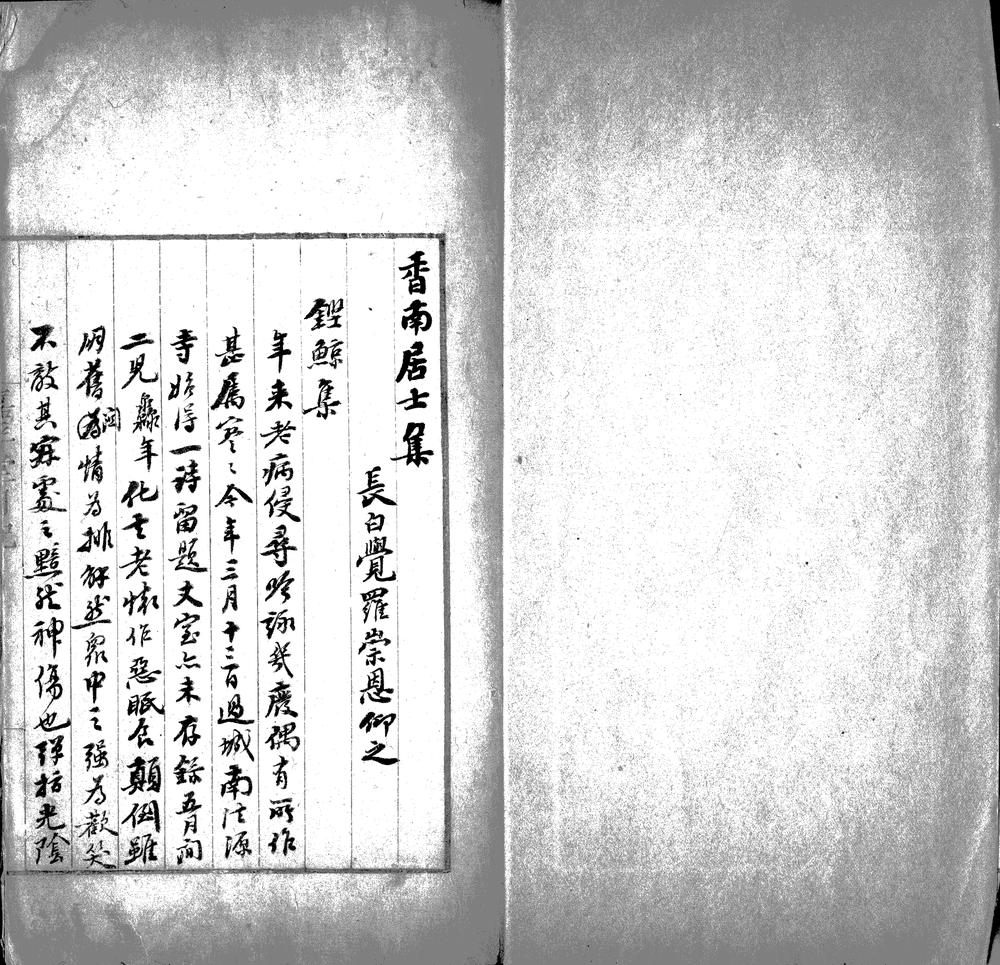 香南居士集
長白覺羅崇恩仰之
鏗鯨集
年来老病侵尋吟詠幾廢偶有所作
甚屬寥〻今年三月十三日過城南法源
寺始得一詩留題丈室亦未存錄五月間
二兒龜年化去老懷作惡眠食顛倒雖
朋舊關情為排解然眾中之强為歡笑
不敵其寂處之黯然神傷也彈指光陰